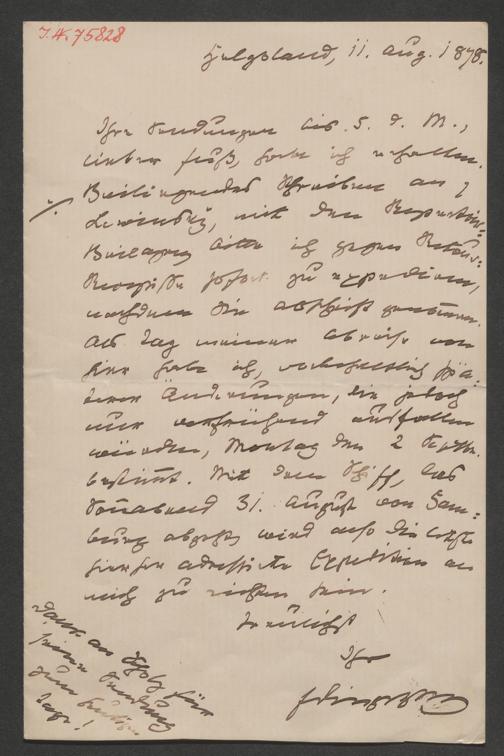 I.N. 75828
Helgoland, 11. Aug. 1878.
Ihre Sendungen bis 5. d. M.,
lieber Fuß, habe ich erhalten.
Beiliegendes Schreiben an
Lewinsky, mit den Repertoir=
Beilagen bitte ich gegen Retour=
Recepisse sofort zu expediren,
nachdem die Abschrift genommen.
Als Tag meiner Abreise von
hier habe ich, vorbehaltlich spä=
terer Änderungen, die jedoch
nur verfrühend ausfallen
würden, Montag den 2 Septbr.
bestimmt. Mit dem Schiff, das
Sonnabend 31. August von Ham=
burg abgeht, wird also die letzte
hierher adressirte Expedition an
mich zu richten sein.
Treulichst
Ihr
Dank an Scholz für
seine Sendung
zum
Tage!